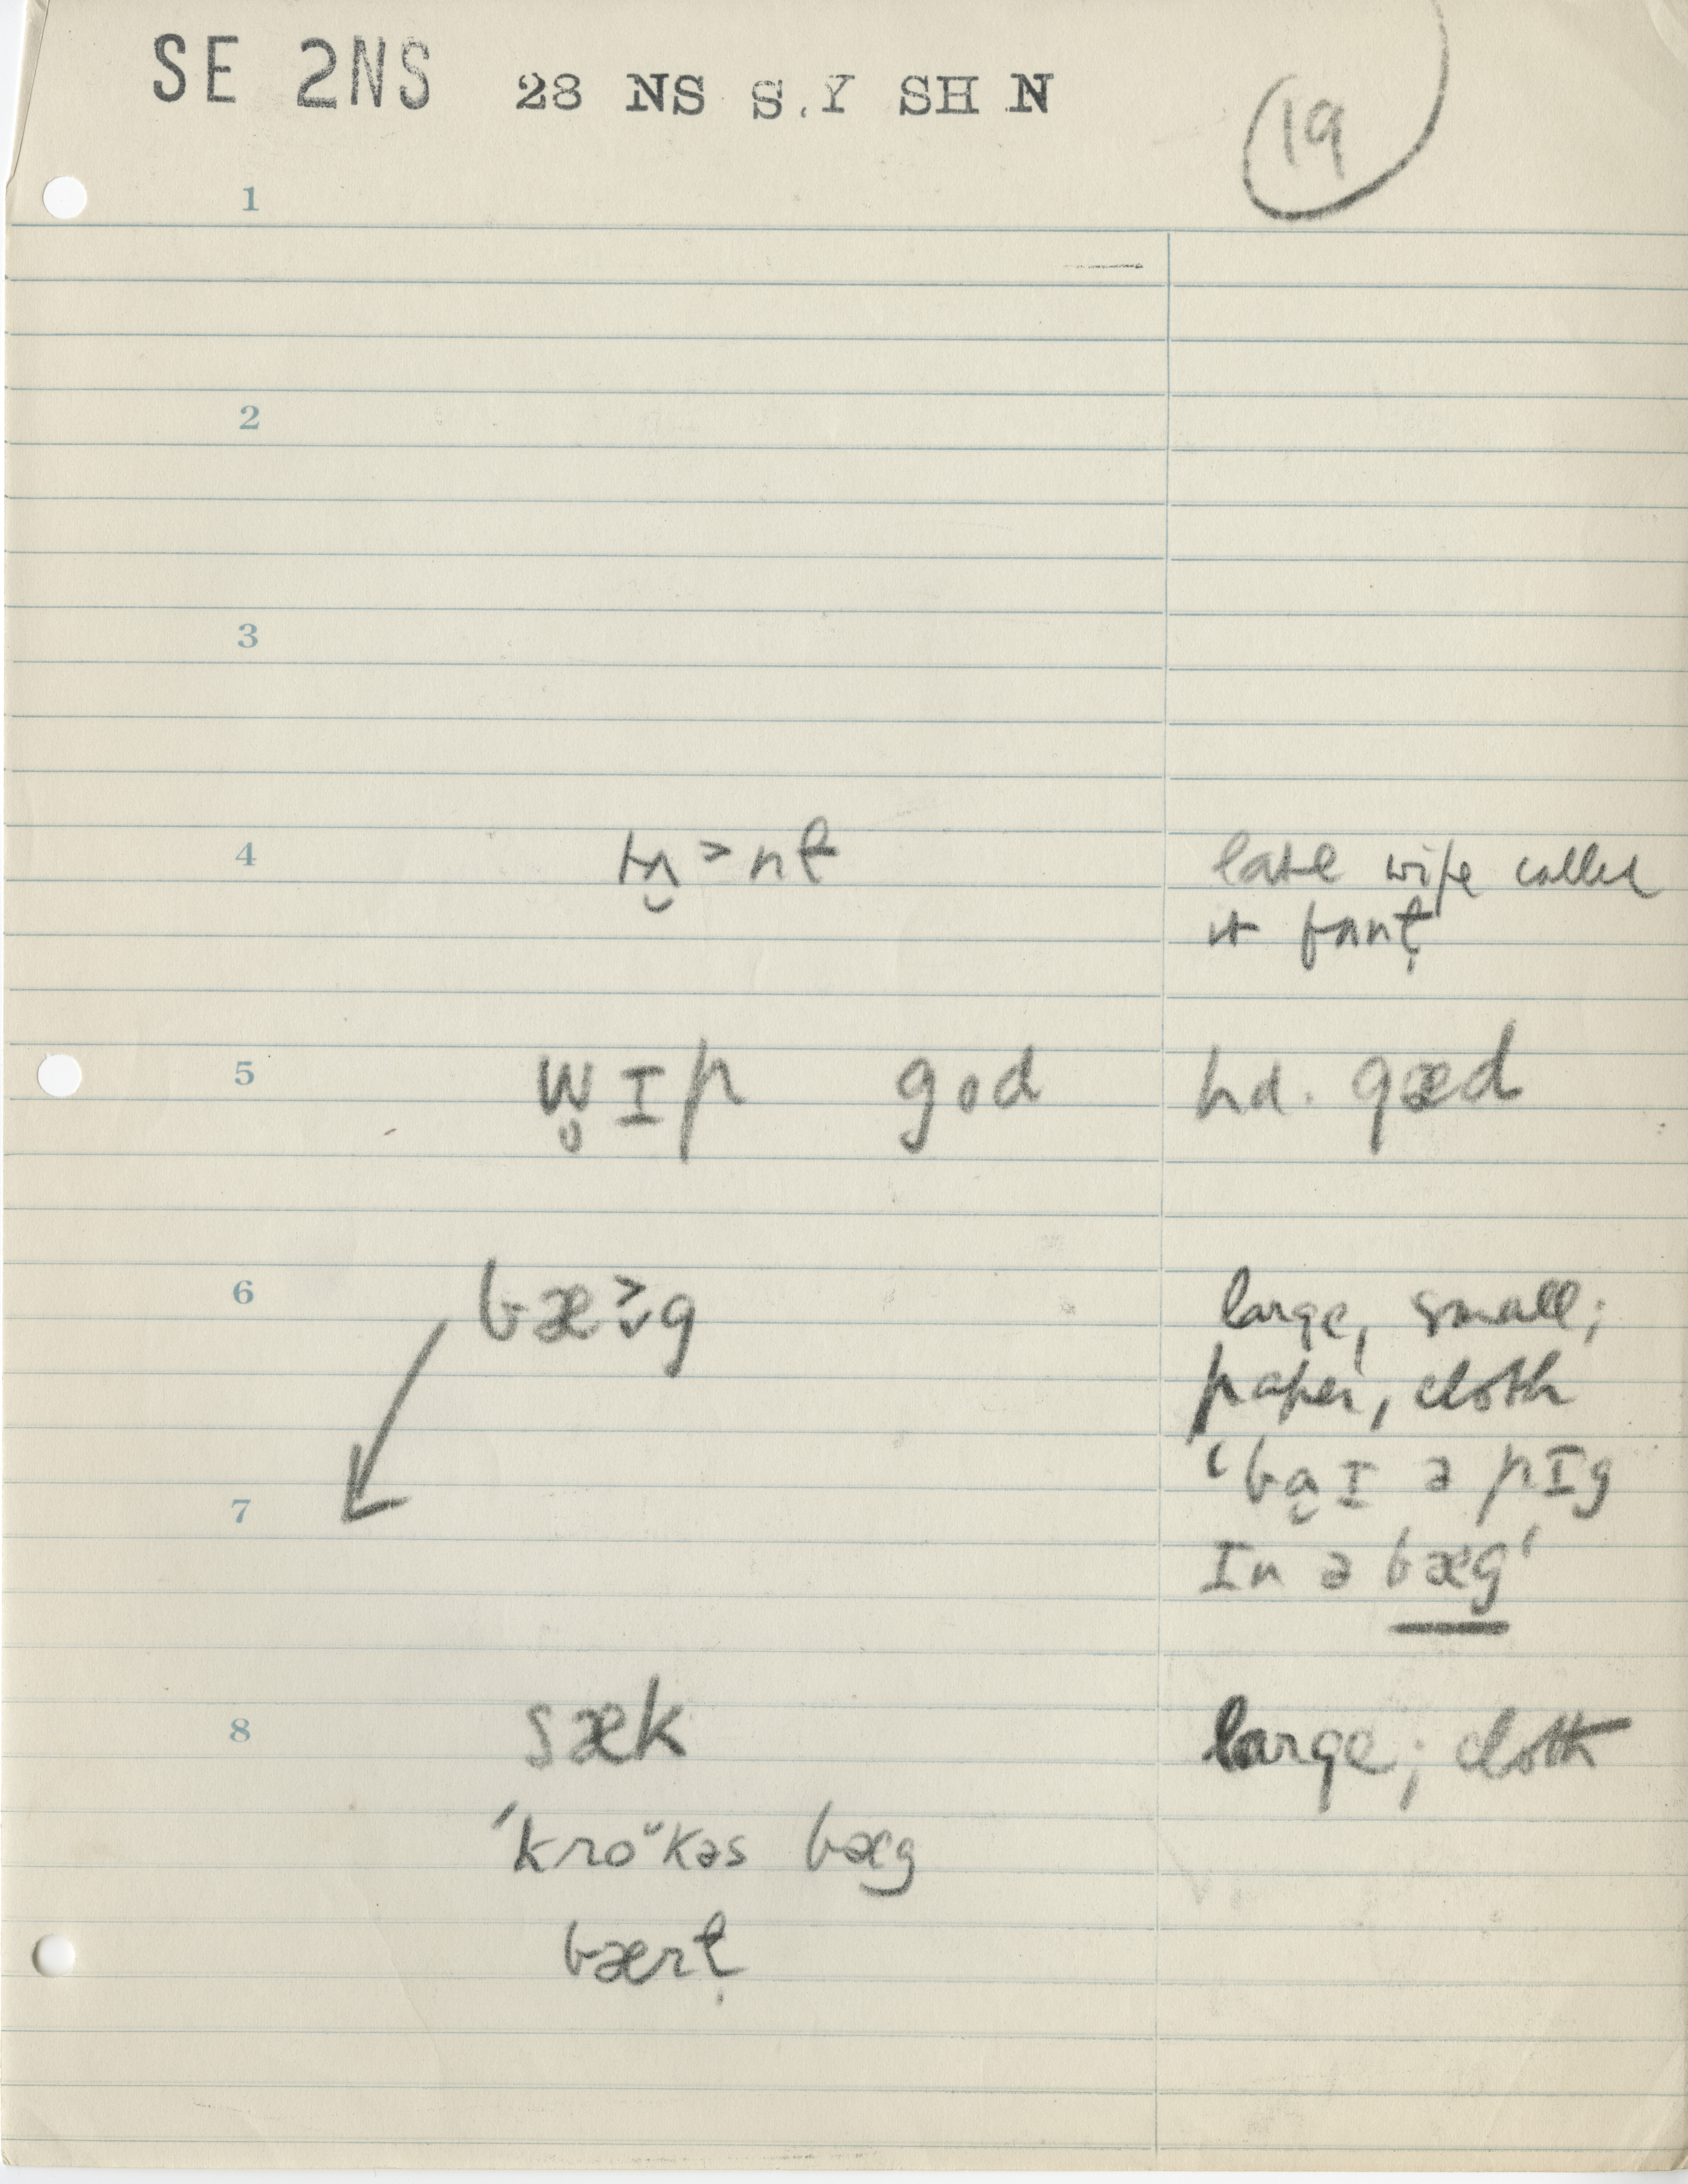 SE 2NS 28 NS S.Y SH N
19
1
2
3
4 late wife called
it
5 w̥ɪp god hd. gæd
6 bæ˃̬g large, small;
paper, cloth
7 ‘ba̯ɪ ə pɪg
ɪn ə bæg’
8 sæk large; cloth
ˈkroᵕkəs bæg
bært̩